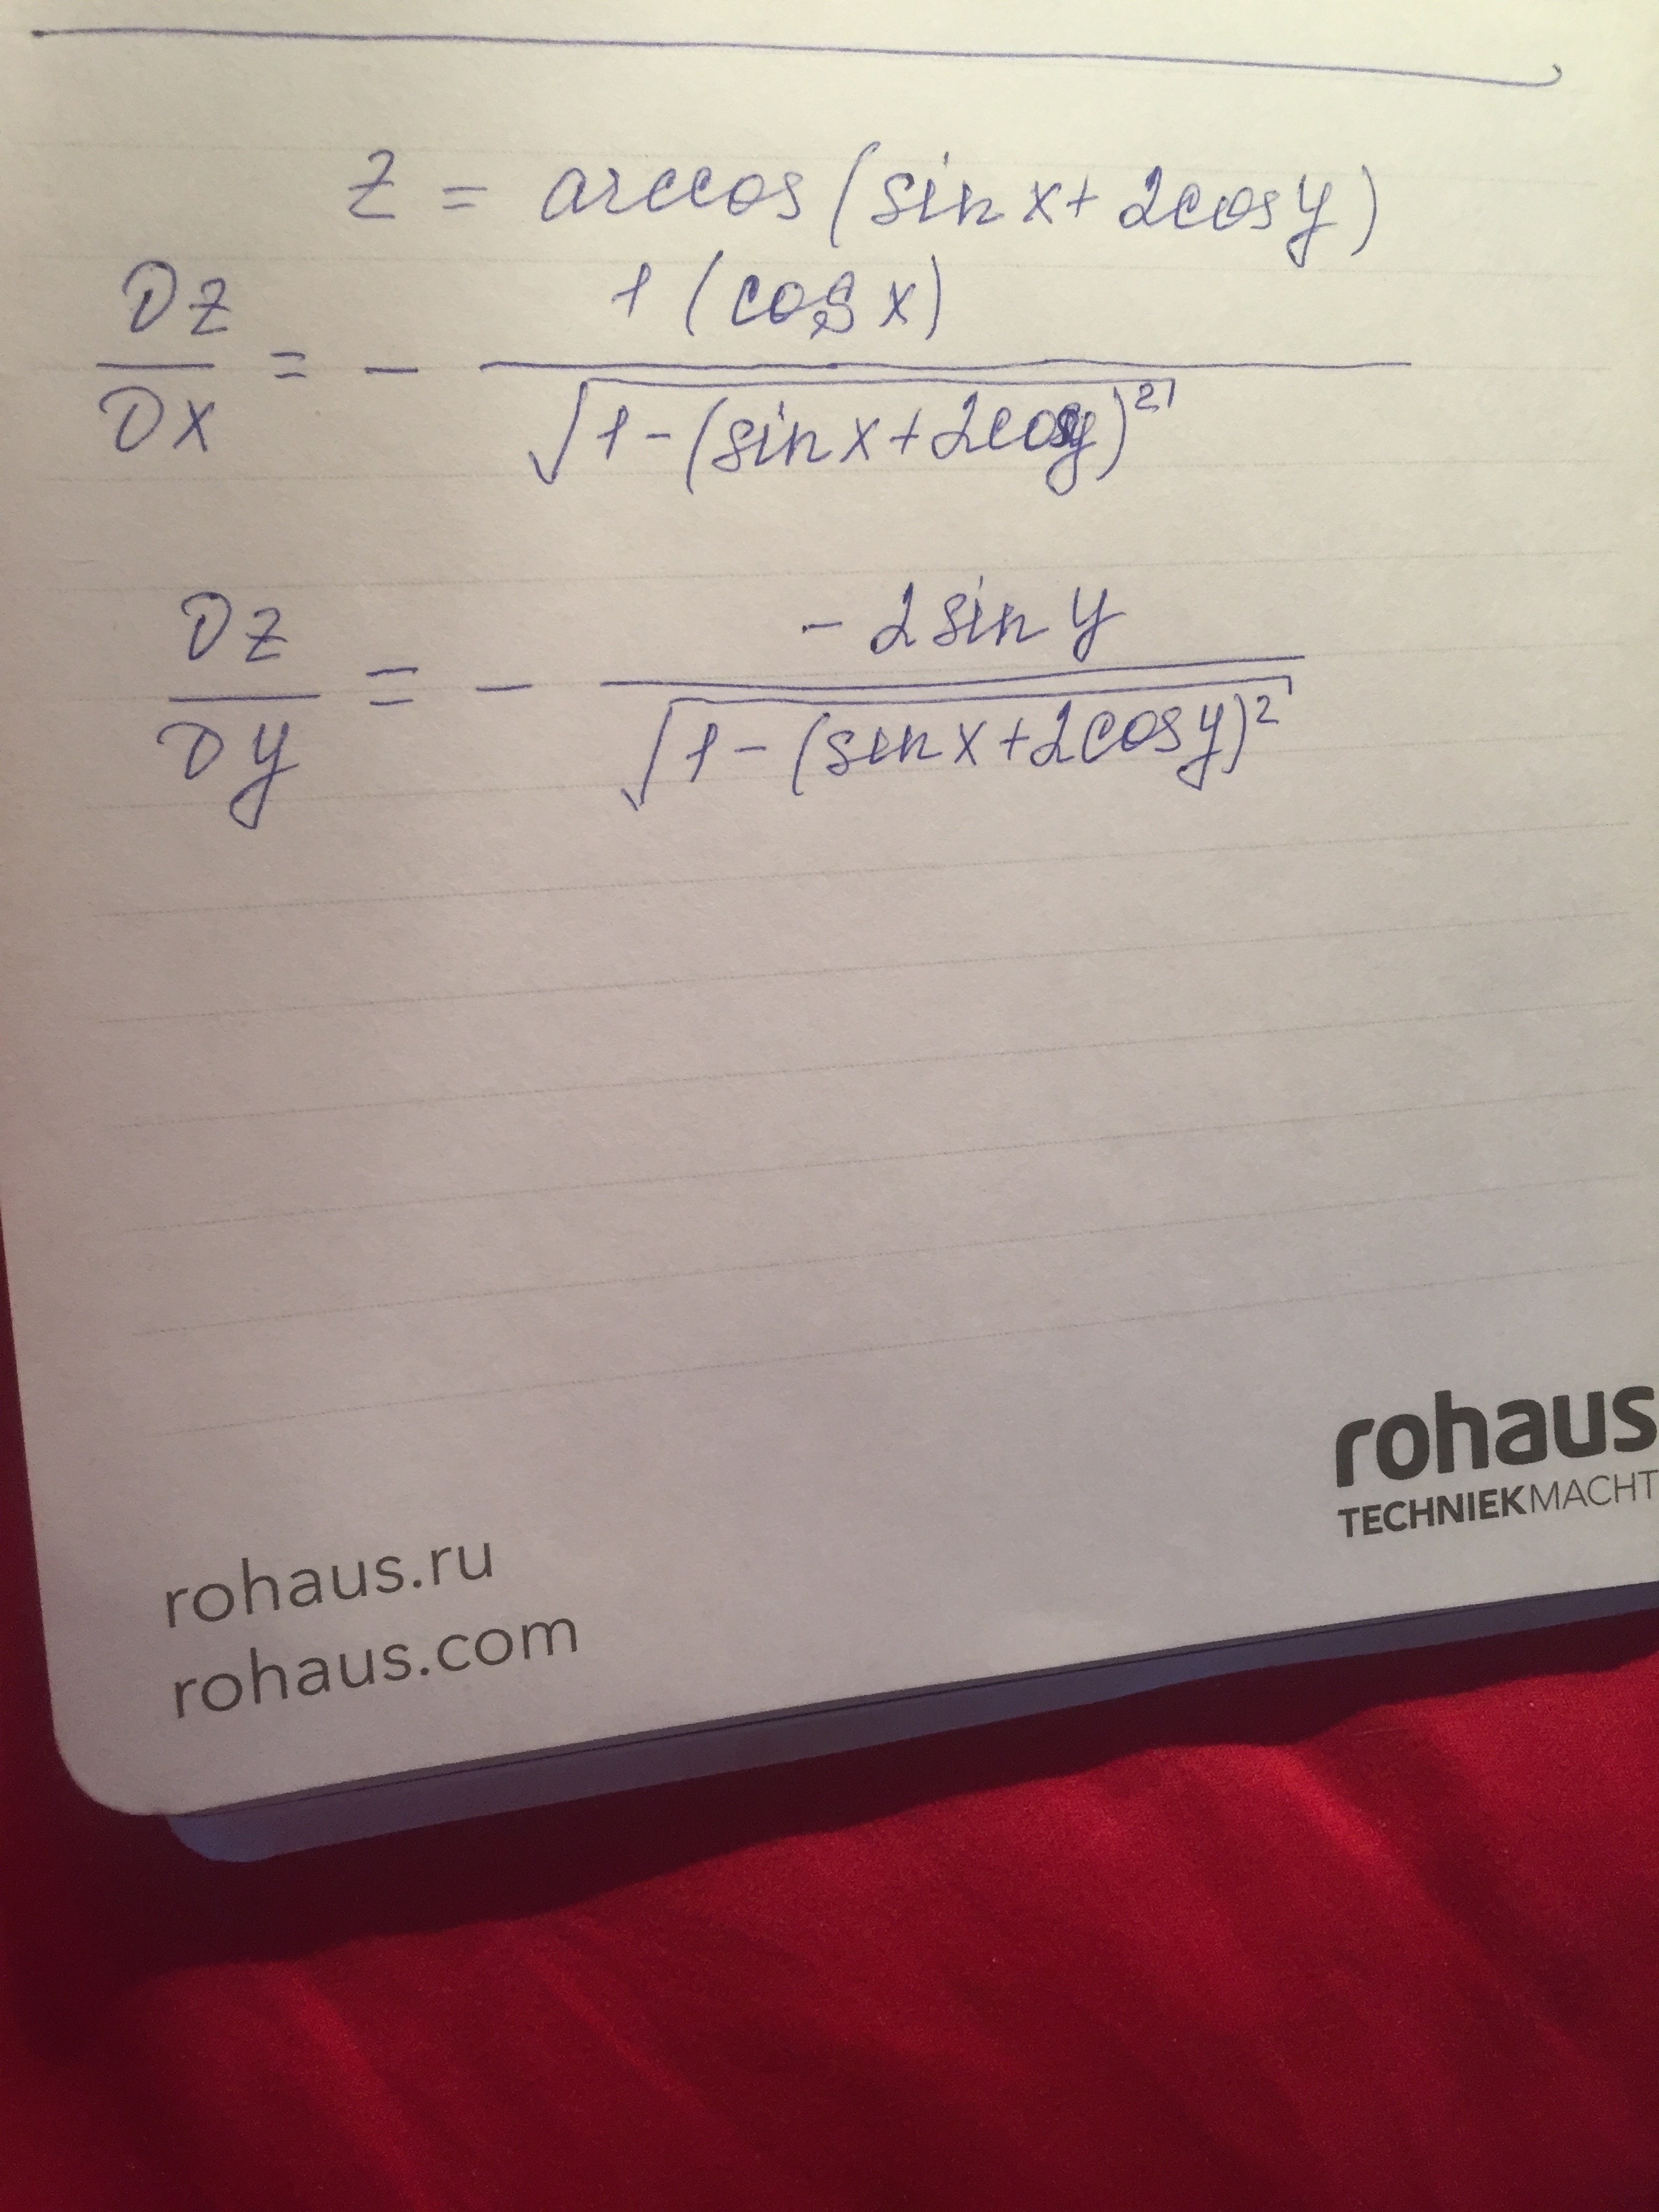 z = arccos(sin x + 2cos y)
∂z/∂x = - 1(cos x)/√(1-(sin x+2cos y)²)
∂z/∂y = - -2 sin y/√(1-(sin x+2cos y)²)
rohaus
TECHNIEKMACHT
rohaus.ru
rohaus.com